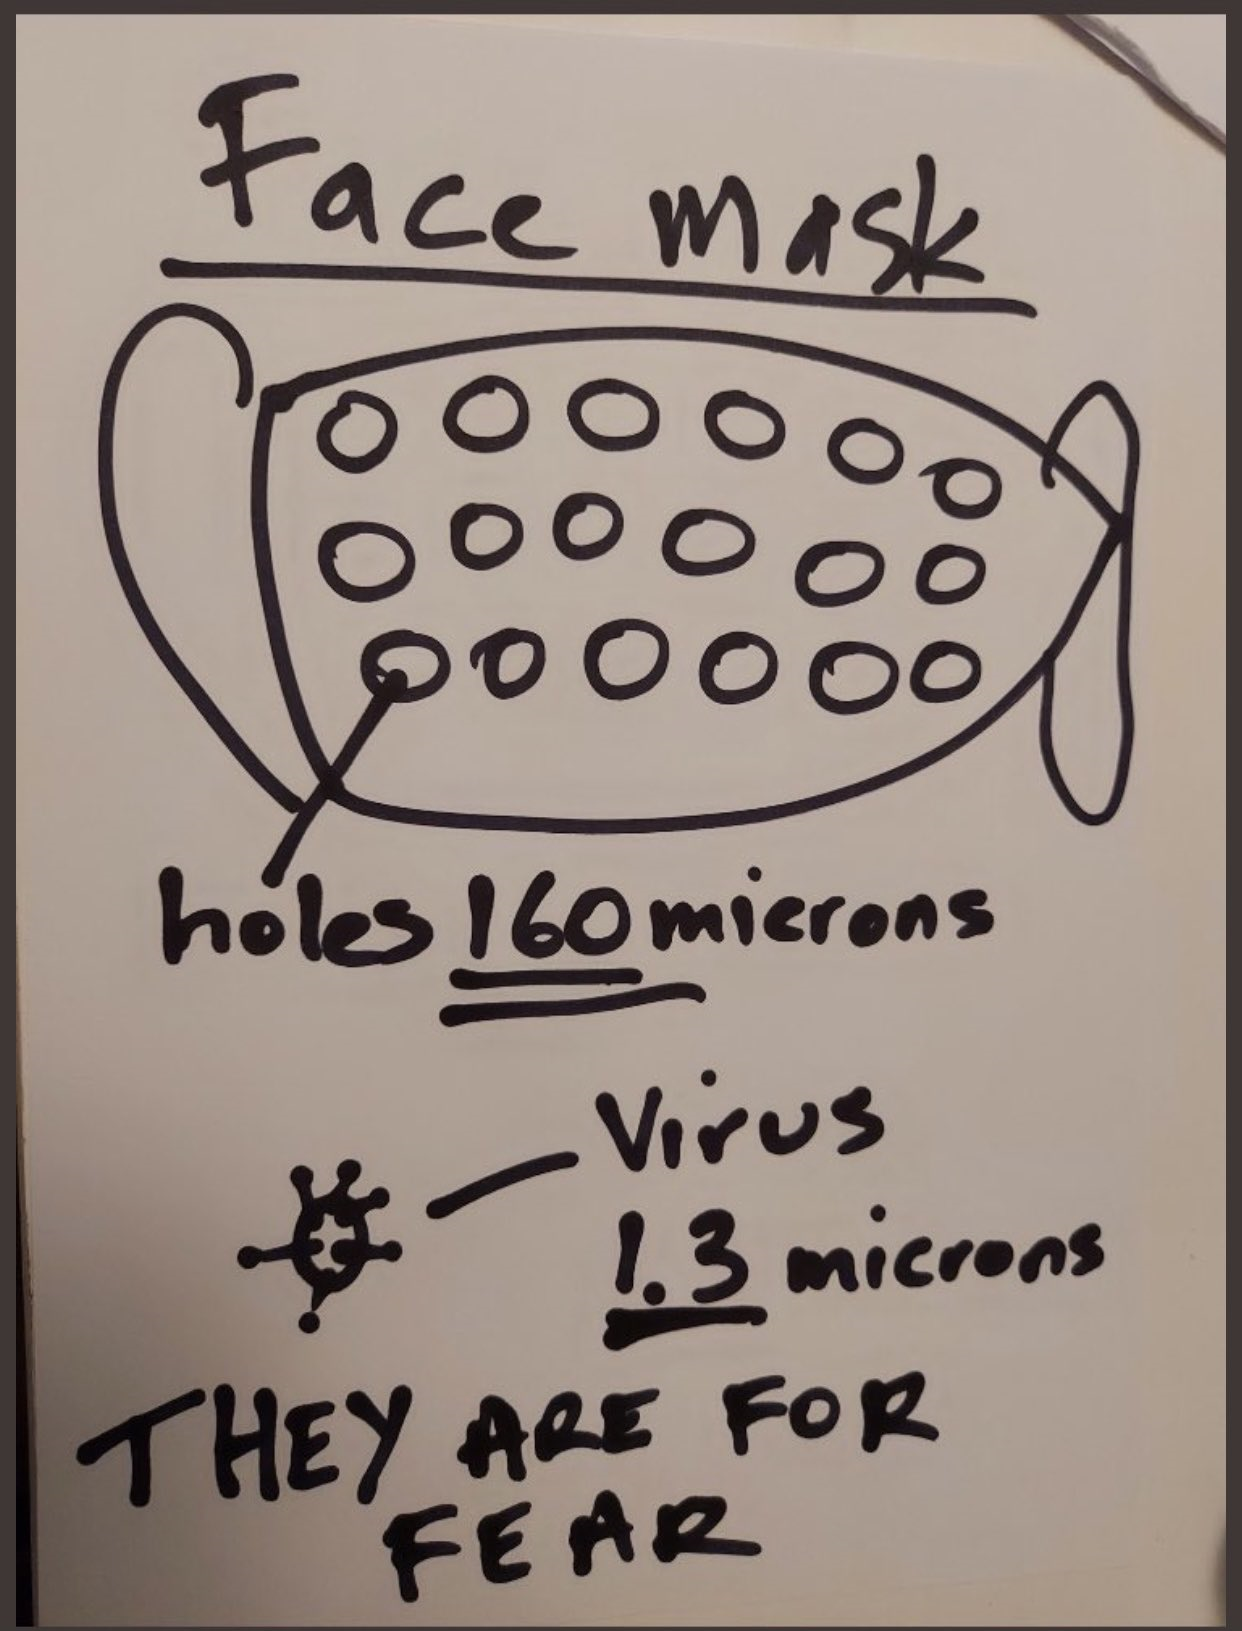 Face mask
holes 160 microns
Virus
1.3 microns
THEY ARE FOR
FEAR